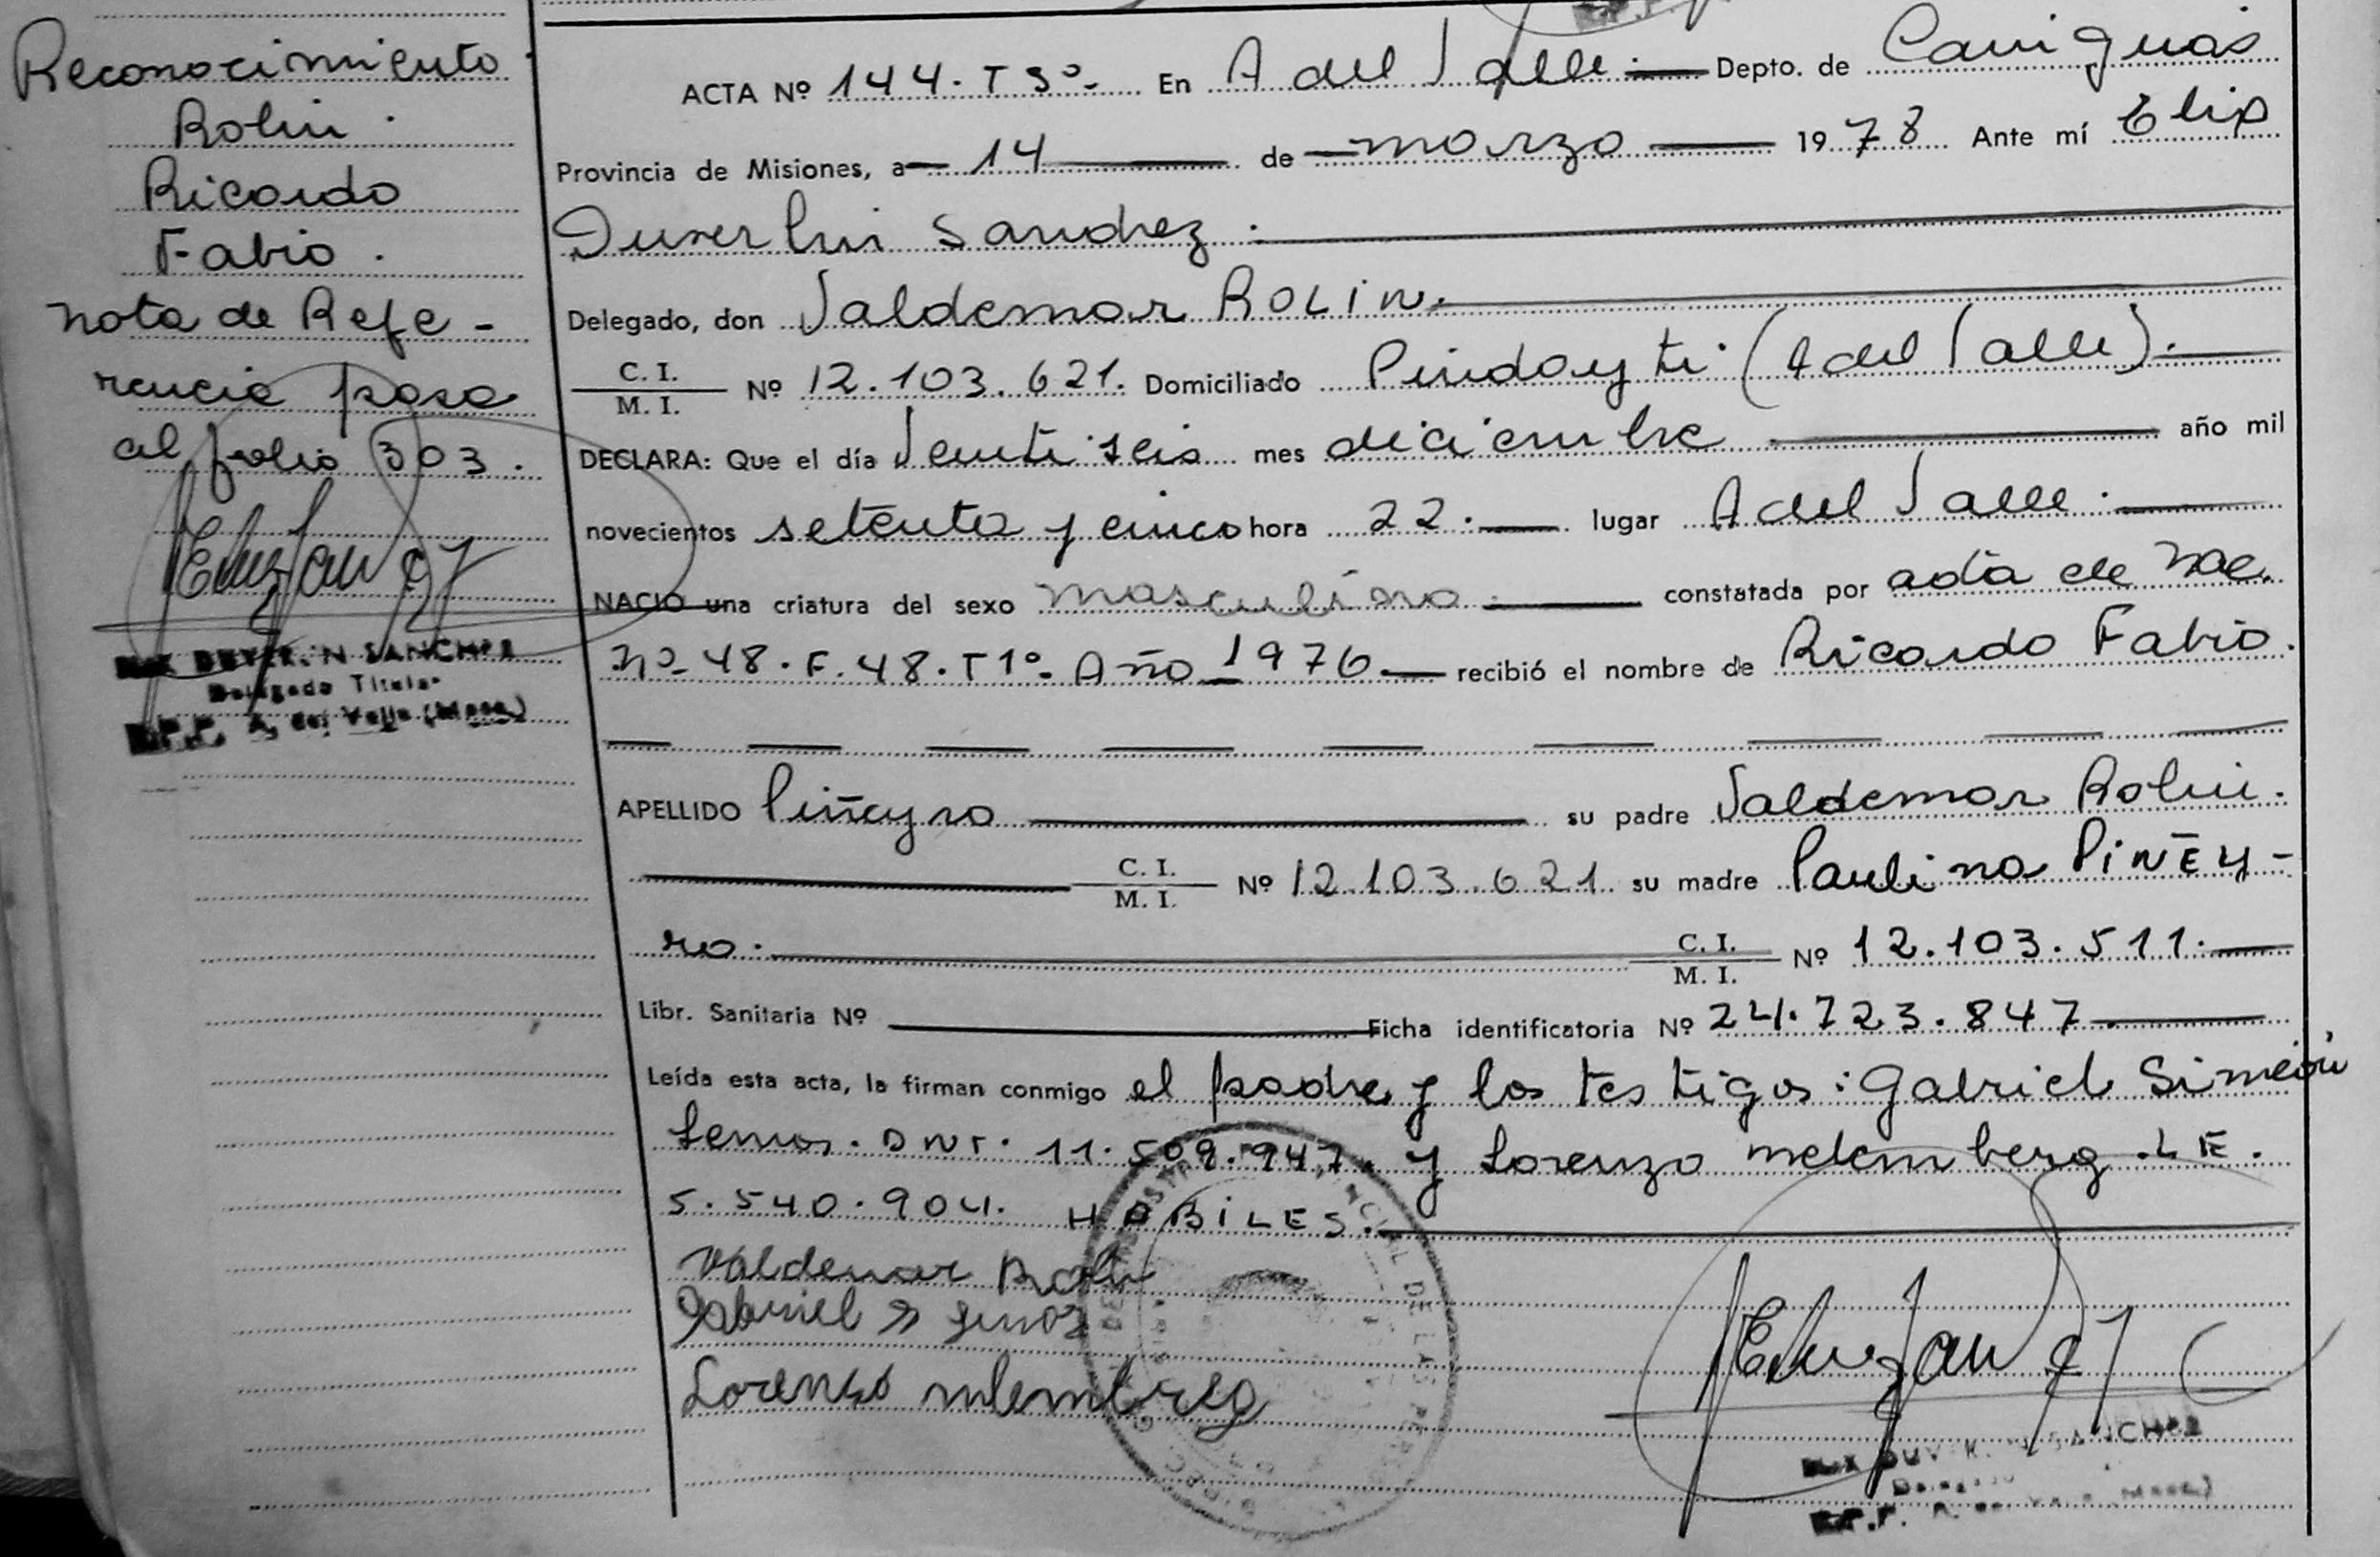 Reconocimiento
Rolin.
Ricardo
Fabio.
nota de Refe-
rencia pasa
al folio 303.
SANCHEZ
Delegado Titular
R.P.P. A. del Valle (Mnes.)
ACTA Nº 144. T 3º- En A del Valle. Depto. de Cainguás
Provincia de Misiones, a 14 de marzo 1978 Ante mí Elix
Duverlin Sanchez.
Delegado, don Valdemar ROLIN.
C. I.
M. I. Nº 12.103.621. Domiciliado Pindayti (A del Valle).
DECLARA: Que el día Veintiseis mes diciembre año mil
novecientos setenta y cinco hora 22. lugar A del Valle.
NACIO una criatura del sexo masculino. constatada por acta de nac.
Nº 48. F. 48. T 1º- Año 1976 recibió el nombre de Ricardo Fabio.
APELLIDO Piñeyro su padre Valdemar Rolin.
C. I.
M. I. Nº 12.103.621. su madre Paulina PIÑEY-
ro. C. I.
M. I. Nº 12.103.511.
Libr. Sanitaria Nº Ficha identificatoria Nº 24.723.847
Leída esta acta, la firman conmigo el padre y los testigos: Gabriel Simeón
Lemos. DNI. 11.509.947. y Lorenzo melemberg. LE.
5.540.904. HABILES.
Valdemar Rolin
Gabriel S Lemos
Lorenzo
SANCHEZ